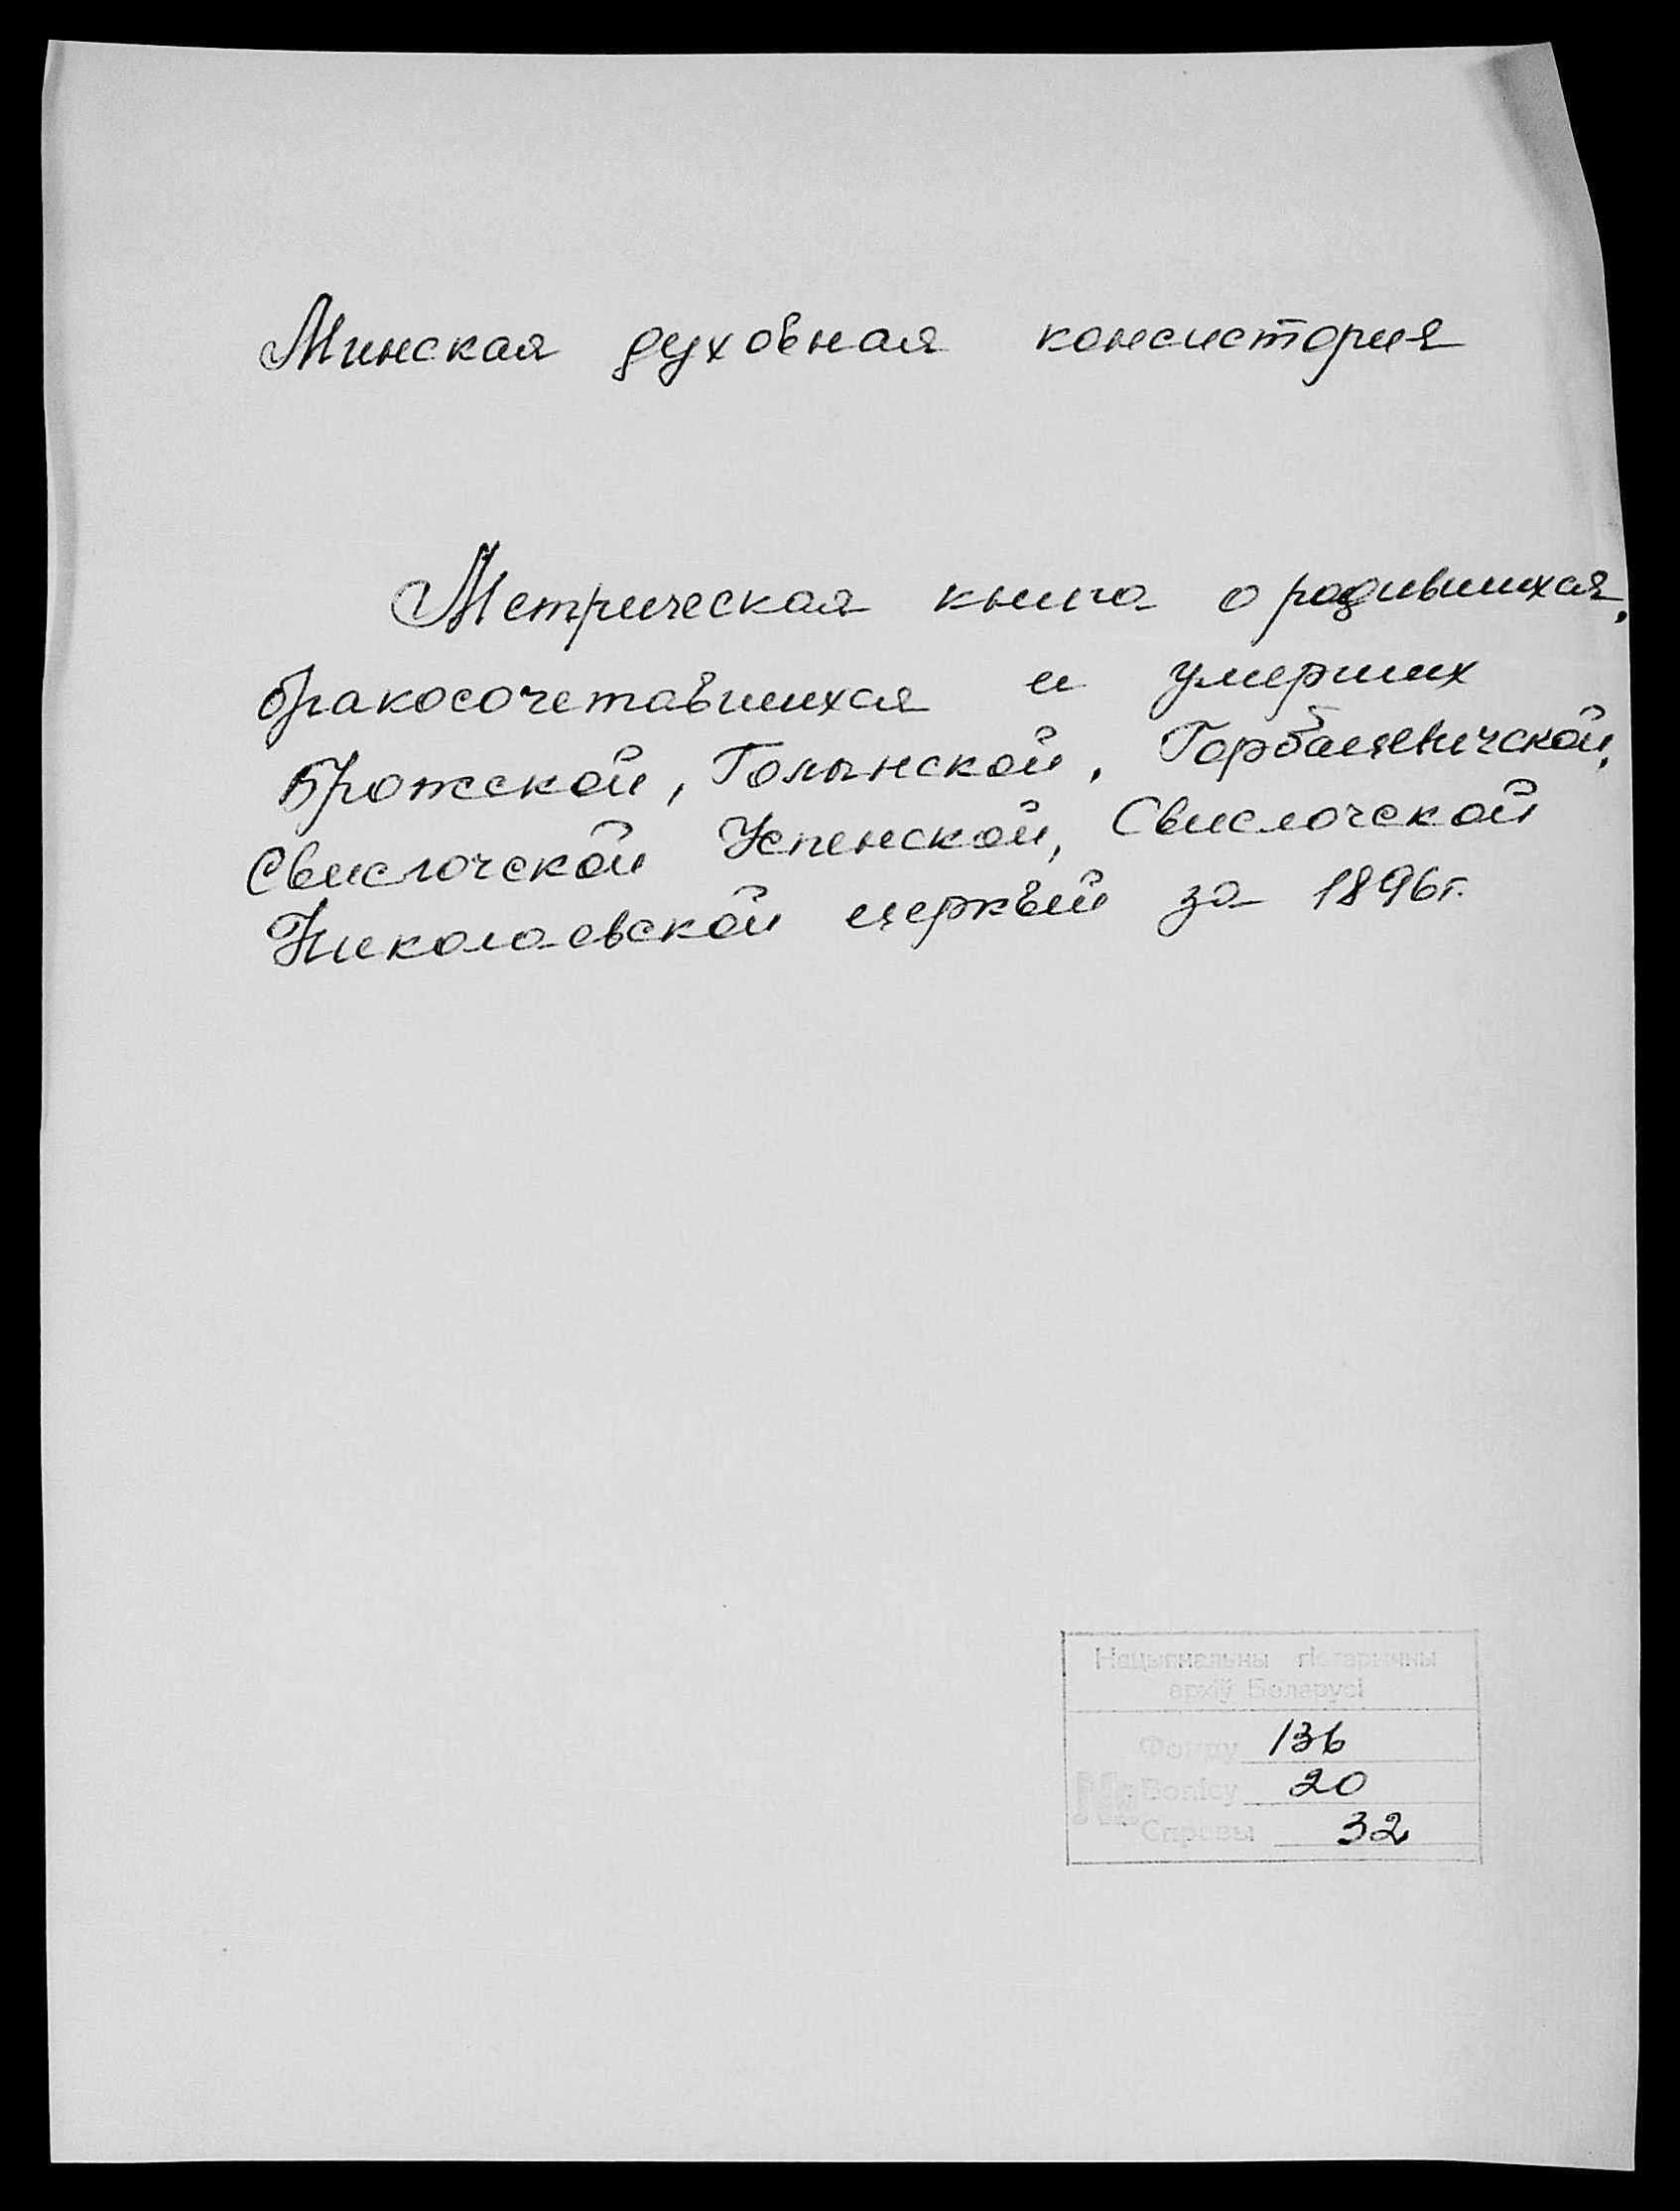 Минская духовная консистория
Метрическая книга о родившихся,
бракосочетавшихся и умерших
Брожской, Голынской, Горбацевичской,
Свислочской Успенской, Свислочской
Николаевской церквий за 1896г.
Нацыянальны гістарычны
архіў Беларусі
Фонду 136
№ Вопісу 20
Справы 32